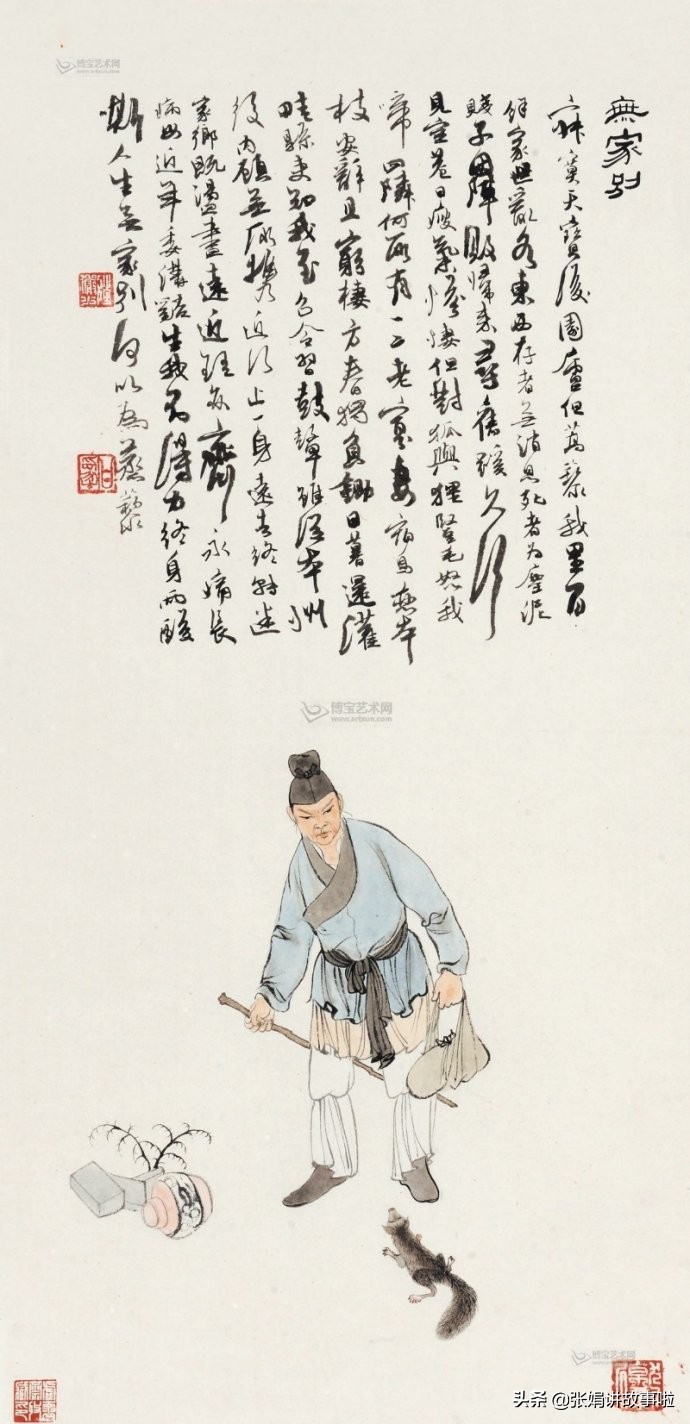 無家別
寂寞天寶後園廬但蒿藜我里百
餘家世亂各東西存者无消息死者为塵泥
賤子因陣敗歸来尋舊蹊久行
見空巷日瘦氣慘悽但對狐與狸豎毛怒我
啼四隣何所有一二老寡妻宿鳥戀本
枝安辭且窮棲方春獨負鋤日暮還灌
畦縣吏知我至召令習鼓鞞雖從本州
役内顧无所攜近行止一身遠去終轉迷
家鄉既盪盡遠近理亦齊永痛長
病母近年委溝谿生我不得力終身兩酸
嘶人生无家別何以為蒸藜
博宝艺术网
www.artxun.com
博宝艺术网
www.artxun.com
博宝艺术网
头条 @张娟讲故事啦